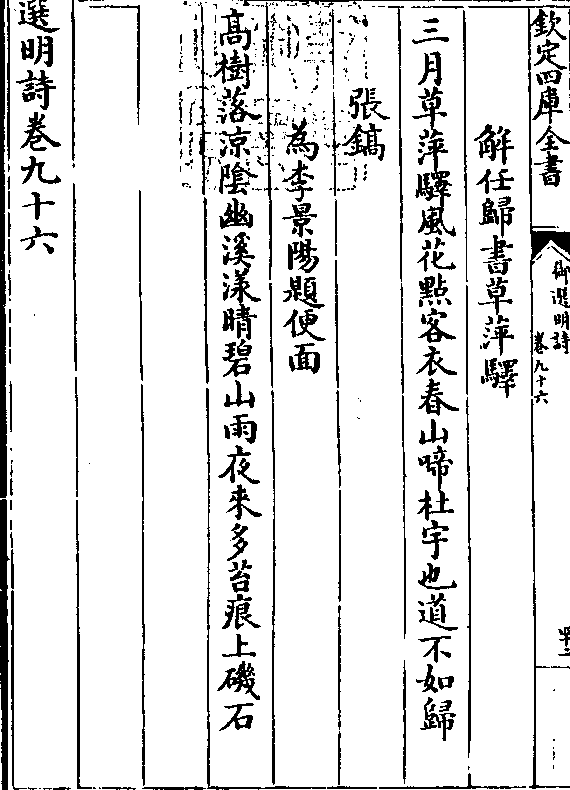 欽定四庫全書
御選明詩
卷九十六
解任歸書草萍驛
三月草萍驛風花點客衣春山啼杜宇也道不如歸
張鎬
為李景陽題便面
髙樹落涼陰幽溪漾晴碧山雨夜來多苔痕上磯石
選明詩卷九十六